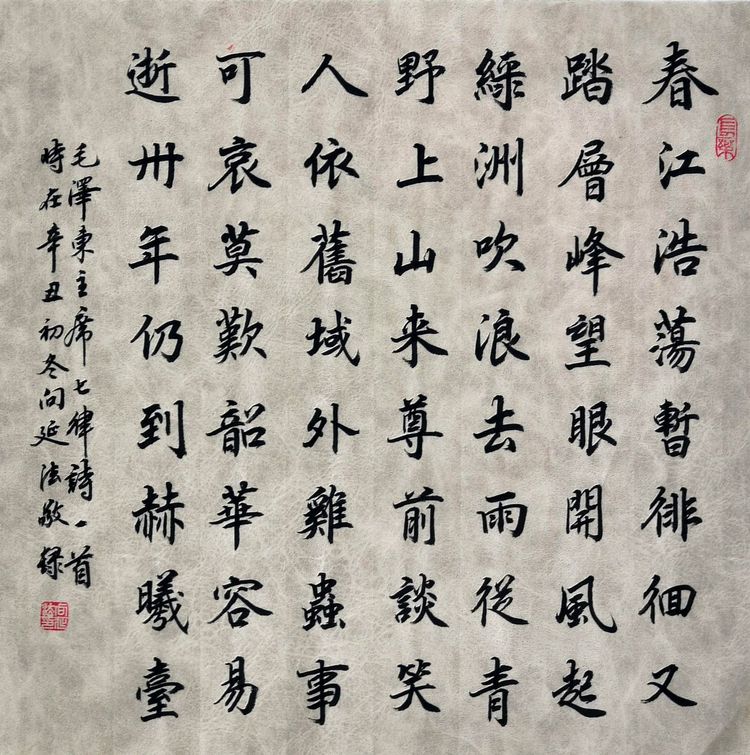 春江浩蕩暫徘徊又
踏層峰望眼開風起
綠洲吹浪去雨從青
野上山来尊前談笑
人依舊域外雞蟲事
可哀莫歎韶華容易
逝卅年仍到赫曦臺
毛澤東主席七律詩一首
時在辛丑初冬向延法敬録